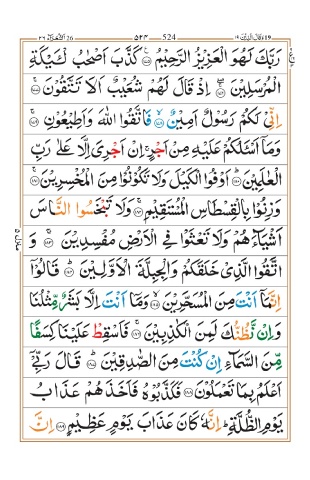 وقال الذین ١٩ 524 ۵۲۴ الشعرآء ٢٦ 26
رَبَّكَ لَهُوَ الْعَزِيْزُ الرَّحِيْمُ ۝١٧٥ كَذَّبَ اَصْحٰبُ لْـَٔيْكَةِ
الْمُرْسَلِيْنَ ۝١٧٦ اِذْ قَالَ لَهُمْ شُعَيْبٌ اَلَا تَتَّقُوْنَ ۝١٧٧
اِنِّيْ لَكُمْ رَسُوْلٌ اَمِيْنٌ ۝١٧٨ فَاتَّقُوا اللّٰهَ وَاَطِيْعُوْنِ ۝١٧٩
وَمَاۤ اَسْـَٔلُكُمْ عَلَيْهِ مِنْ اَجْرٍ ۚ اِنْ اَجْرِيَ اِلَّا عَلٰى رَبِّ
الْعٰلَمِيْنَ ۝١٨٠ اَوْفُوا الْكَيْلَ وَلَا تَكُوْنُوْا مِنَ الْمُخْسِرِيْنَ ۝١٨١
وَزِنُوْا بِالْقِسْطَاسِ الْمُسْتَقِيْمِ ۝١٨٢ وَلَا تَبْخَسُوا النَّاسَ
اَشْيَآءَهُمْ وَلَا تَعْثَوْا فِي الْاَرْضِ مُفْسِدِيْنَ ۝١٨٣ وَ
اتَّقُوا الَّذِيْ خَلَقَكُمْ وَالْجِبِلَّةَ الْاَوَّلِيْنَ ۝١٨٤ قَالُوْۤا
اِنَّمَاۤ اَنْتَ مِنَ الْمُسَحَّرِيْنَ ۝١٨٥ وَمَاۤ اَنْتَ اِلَّا بَشَرٌ مِّثْلُنَا
وَاِنْ نَّظُنُّكَ لَمِنَ الْكٰذِبِيْنَ ۝١٨٦ فَاَسْقِطْ عَلَيْنَا كِسَفًا
مِّنَ السَّمَآءِ اِنْ كُنْتَ مِنَ الصّٰدِقِيْنَ ۝١٨٧ قَالَ رَبِّيْۤ
اَعْلَمُ بِمَا تَعْمَلُوْنَ ۝١٨٨ فَكَذَّبُوْهُ فَاَخَذَهُمْ عَذَابُ
يَوْمِ الظُّلَّةِ ؕ اِنَّهٗ كَانَ عَذَابَ يَوْمٍ عَظِيْمٍ ۝١٨٩ اِنَّ